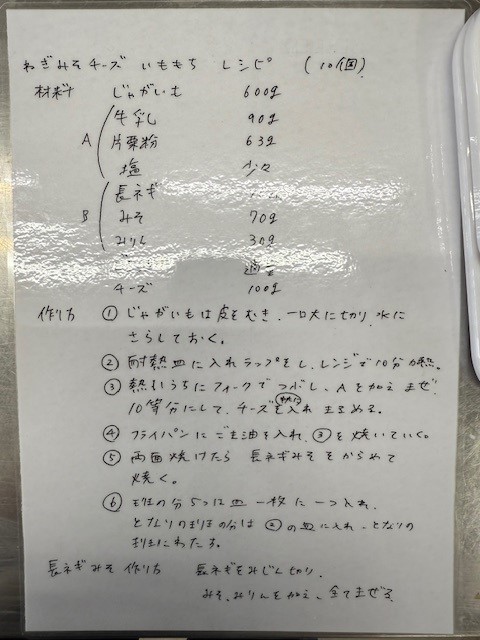 ねぎみそチーズ いももち レシピ (10個)
材料 じゃがいも 600g
A 牛乳 90g
片栗粉 63g
塩 少々
B 長ネギ
みそ 70g
みりん 30g
適量
チーズ 100g
作り方 ① じゃがいもは皮をむき、一口大に切り、水に
さらしておく。
② 耐熱皿に入れラップをし、レンジで10分加熱。
③ 熱いうちにフォークでつぶし、Aを加えまぜ、
10等分にして、チーズを中に入れまるめる。
④ フライパンにごま油を入れ、③を焼いていく。
⑤ 両面焼けたら 長ネギみそをからめて
焼く。
⑥ 班の分5つは皿一枚に一つ入れ、
となりの班の分は②の皿に入れ、となりの
班にわたる。
長ネギみそ 作り方 長ネギをみじん切り、
みそ、みりんを加え、全てまぜる。